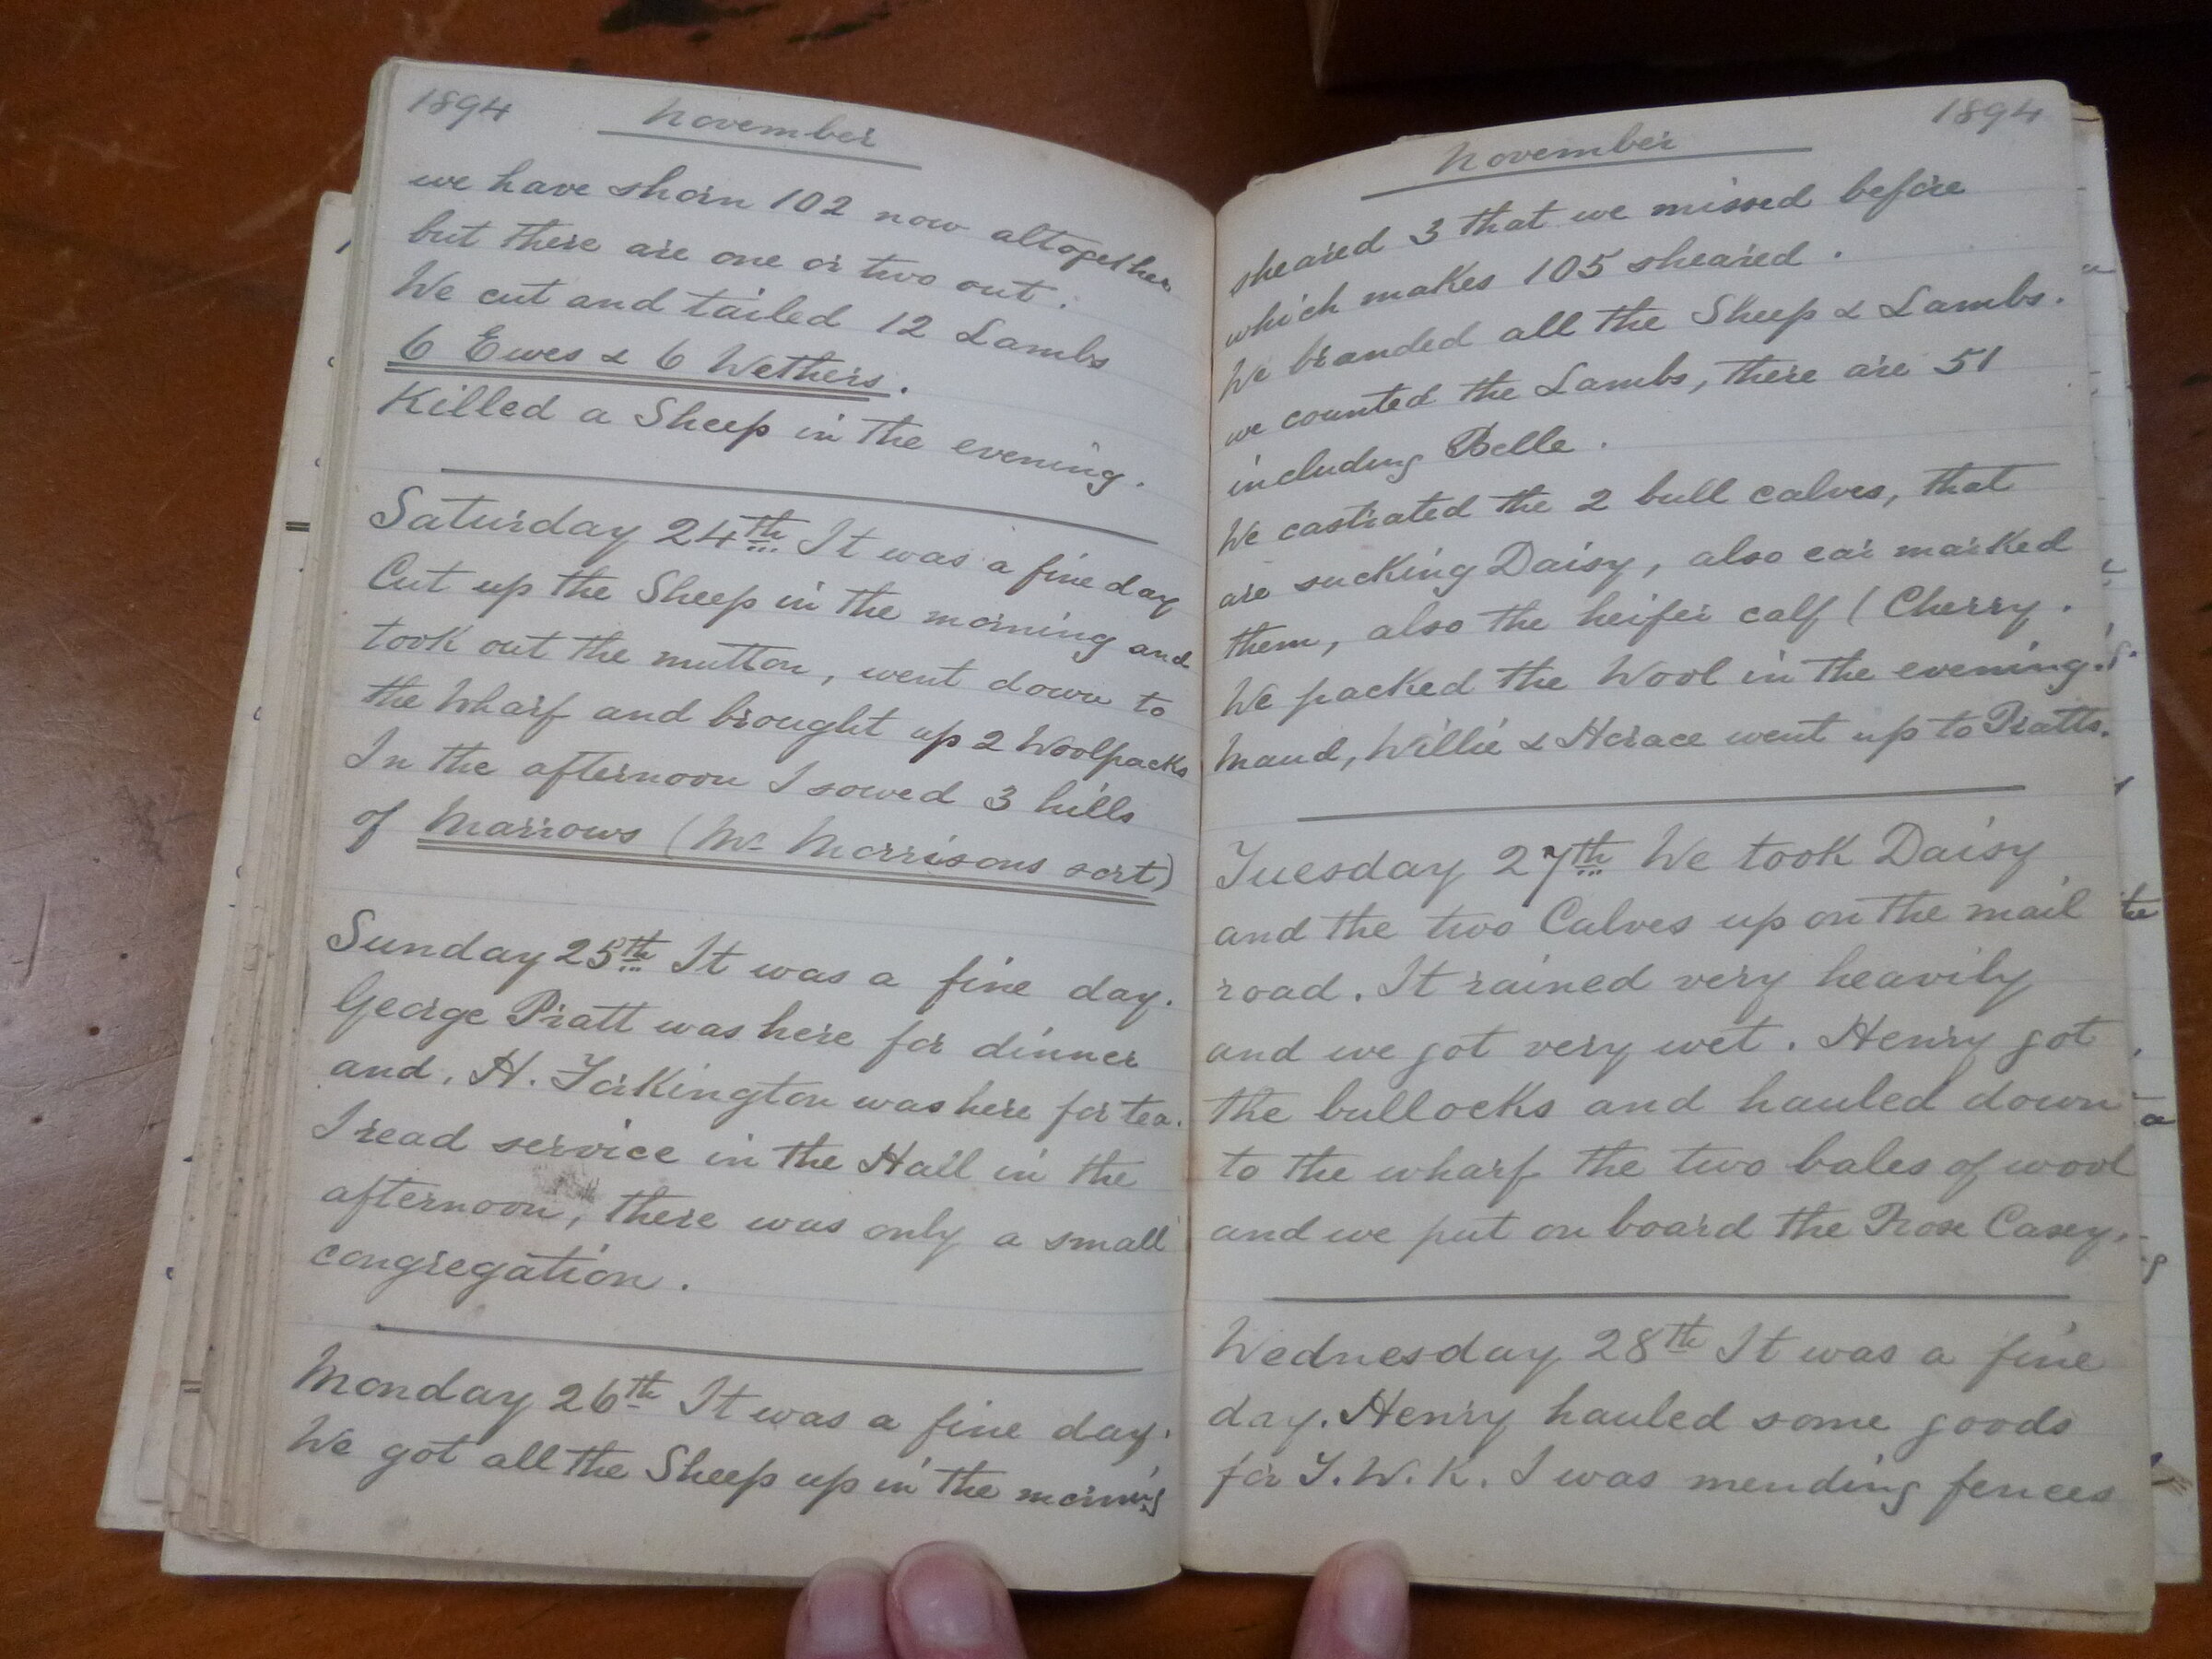 1894 November
we have shorn 102 now altogether
but there are one or two out.
We cut and tailed 12 Lambs
6 Ewes & 6 Wethers.
Killed a Sheep in the evening.
Saturday 24th It was a fine day
Cut up the Sheep in the morning and
took out the mutton, went down to
the Wharf and brought up 2 Woolpacks
In the afternoon I sowed 3 hills
of Marrows (Mr Morrisons sort)
Sunday 25th It was a fine day.
George Pratt was here for dinner
and, H. Torkington was here for tea.
I read service in the Hall in the
afternoon, there was only a small
congregation.
Monday 26th It was a fine day.
We got all the Sheep up in the morning
November 1894
sheared 3 that we missed before
which makes 105 sheared.
We branded all the Sheep & Lambs.
we counted the Lambs, there are 51
including Belle.
We castrated the 2 bull calves, that
are sucking Daisy, also ear marked
them, also the heifer calf (Cherry.
We packed the Wool in the evening.
Maud, Willie & Horace went up to Pratts.
Tuesday 27th We took Daisy
and the two Calves up on the mail
road. It rained very heavily
and we got very wet. Henry got
the bullocks and hauled down
to the wharf the two bales of wool
and we put on board the Rose Casey.
Wednesday 28th It was a fine
day. Henry hauled some goods
for T.W.K. I was mending fences